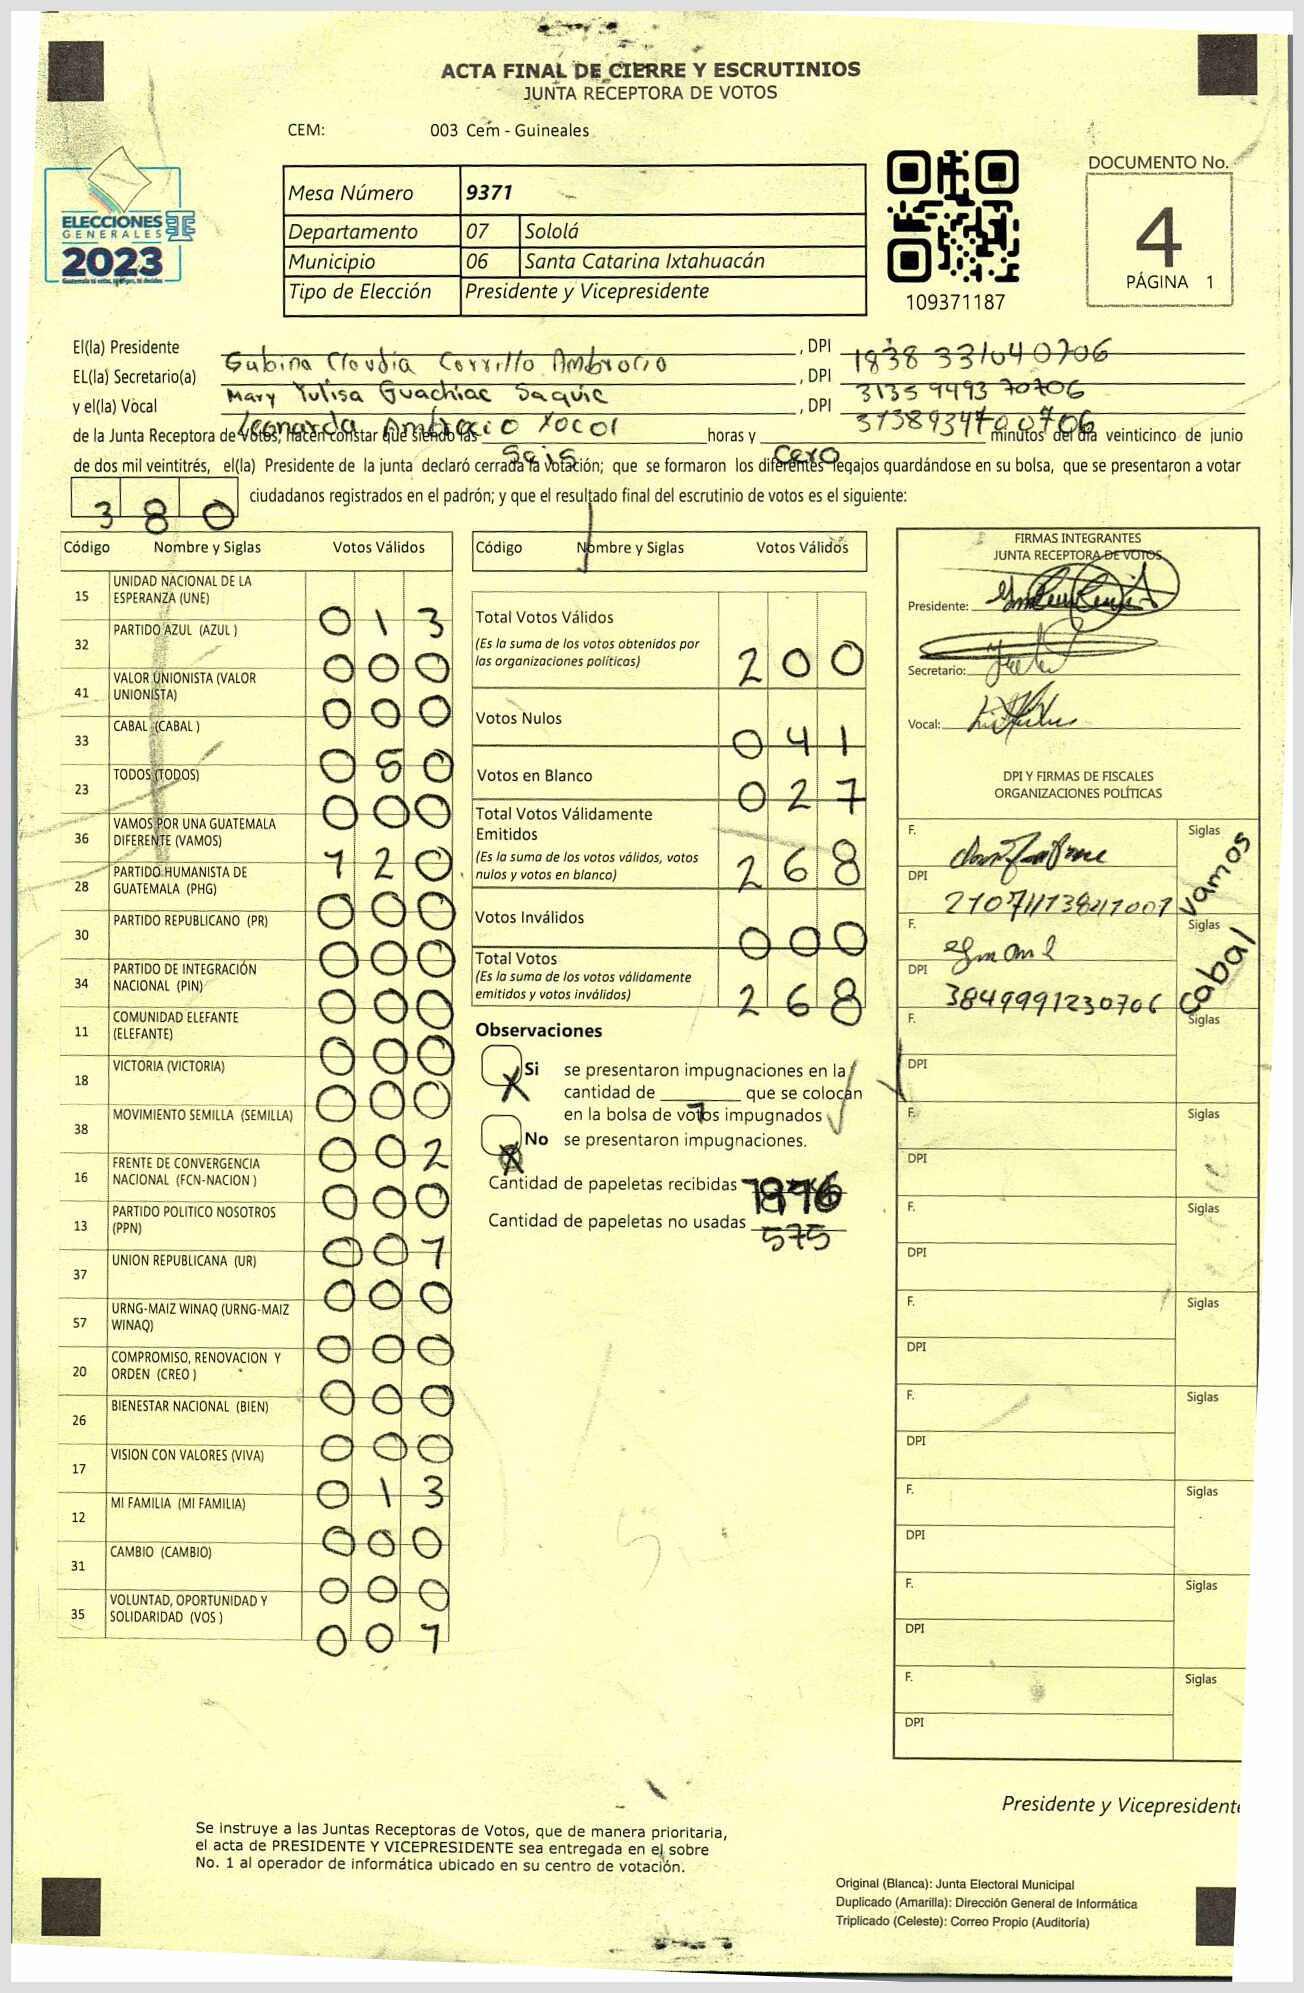 ACTA FINAL DE CIERRE Y ESCRUTINIOS
JUNTA RECEPTORA DE VOTOS
CEM: 003 Cem - Guineales
ELECCIONES
GENERALES
2023
Mesa Número 9371
Departamento 07 Sololá
Municipio 06 Santa Catarina Ixtahuacán
Tipo de Elección Presidente y Vicepresidente
109371187
DOCUMENTO No.
4
PÁGINA 1
El(la) Presidente Gubina Claudia Carrillo Ambrocio , DPI 1838 331040706
EL(la) Secretario(a) Mary Yulisa Guachiac Saquic , DPI 3135 9493 70706
y el(la) Vocal Leonarda Ambrocio Xocol , DPI 3138934700706
de la Junta Receptora de Votos, hacen constar que siendo las Seis horas y Cero minutos del día veinticinco de junio
de dos mil veintitrés, el(la) Presidente de la junta declaró cerrada la votación; que se formaron los diferentes legajos guardándose en su bolsa, que se presentaron a votar
380 ciudadanos registrados en el padrón; y que el resultado final del escrutinio de votos es el siguiente:
Código Nombre y Siglas Votos Válidos
15 UNIDAD NACIONAL DE LA ESPERANZA (UNE) 013
32 PARTIDO AZUL (AZUL ) 000
41 VALOR UNIONISTA (VALOR UNIONISTA) 000
33 CABAL (CABAL ) 050
23 TODOS (TODOS) 000
36 VAMOS POR UNA GUATEMALA DIFERENTE (VAMOS) 120
28 PARTIDO HUMANISTA DE GUATEMALA (PHG) 000
30 PARTIDO REPUBLICANO (PR) 000
34 PARTIDO DE INTEGRACIÓN NACIONAL (PIN) 000
11 COMUNIDAD ELEFANTE (ELEFANTE) 000
18 VICTORIA (VICTORIA) 000
38 MOVIMIENTO SEMILLA (SEMILLA) 002
16 FRENTE DE CONVERGENCIA NACIONAL (FCN-NACION ) 000
13 PARTIDO POLITICO NOSOTROS (PPN) 001
37 UNION REPUBLICANA (UR) 000
57 URNG-MAIZ WINAQ (URNG-MAIZ WINAQ) 000
20 COMPROMISO, RENOVACION Y ORDEN (CREO ) 000
26 BIENESTAR NACIONAL (BIEN) 000
17 VISION CON VALORES (VIVA) 013
12 MI FAMILIA (MI FAMILIA) 000
31 CAMBIO (CAMBIO) 000
35 VOLUNTAD, OPORTUNIDAD Y SOLIDARIDAD (VOS ) 001
Código Nombre y Siglas Votos Válidos
Total Votos Válidos
(Es la suma de los votos obtenidos por
las organizaciones políticas) 200
Votos Nulos 041
Votos en Blanco 027
Total Votos Válidamente
Emitidos
(Es la suma de los votos válidos, votos
nulos y votos en blanco) 268
Votos Inválidos 000
Total Votos
(Es la suma de los votos válidamente
emitidos y votos inválidos) 268
Observaciones
X Si se presentaron impugnaciones en la
cantidad de 1 que se colocan
en la bolsa de votos impugnados
X No se presentaron impugnaciones.
Cantidad de papeletas recibidas
Cantidad de papeletas no usadas 575
FIRMAS INTEGRANTES
JUNTA RECEPTORA DE VOTOS
Presidente:
Secretario:
Vocal:
DPI Y FIRMAS DE FISCALES
ORGANIZACIONES POLÍTICAS
F. Siglas vamos
DPI
F. Siglas cabal
DPI 3849991230706
F. Siglas
DPI
F. Siglas
DPI
F. Siglas
DPI
F. Siglas
DPI
F. Siglas
DPI
F. Siglas
DPI
F. Siglas
DPI
F. Siglas
DPI
Presidente y Vicepresidente
Se instruye a las Juntas Receptoras de Votos, que de manera prioritaria,
el acta de PRESIDENTE Y VICEPRESIDENTE sea entregada en el sobre
No. 1 al operador de informática ubicado en su centro de votación.
Original (Blanca): Junta Electoral Municipal
Duplicado (Amarilla): Dirección General de Informática
Triplicado (Celeste): Correo Propio (Auditoría)